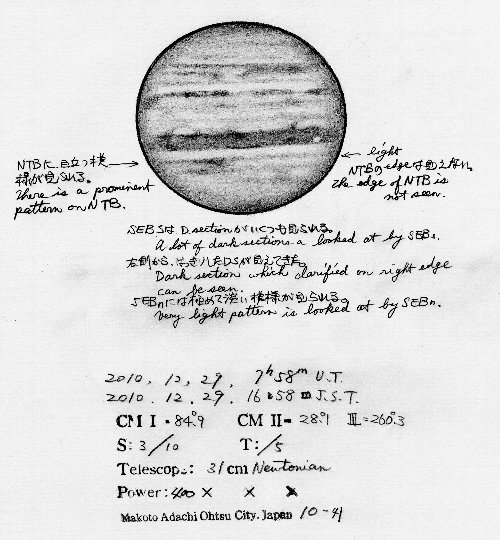 NTBに目立つ模
様が見られる。
There is a prominent
pattern on NTB.
light
NTBのedgeは見えない。
The edge of NTB is
not seen.
SEBSは D.sectionがいくつも見られる。
A lot of dark sections a looked at by SEBs.
左側から、はっきりしたDSが見えてきた。
Dark section which clarified on right edge
can be seen.
SEBnには極めて淡い模様が見られる。
Very light pattern is looked at by SEBn.
2010. 12. 29. 7h58m U.T.
2010. 12. 29. 16h58m J.S.T.
CM I = 84.°9 CM II= 28.°1 III=260.°3
S: 3/10 T: /5
Telescope: 31cm Newtonian
Power: 400 × × ×
Makoto Adachi Ohtsu City. Japan 10-41